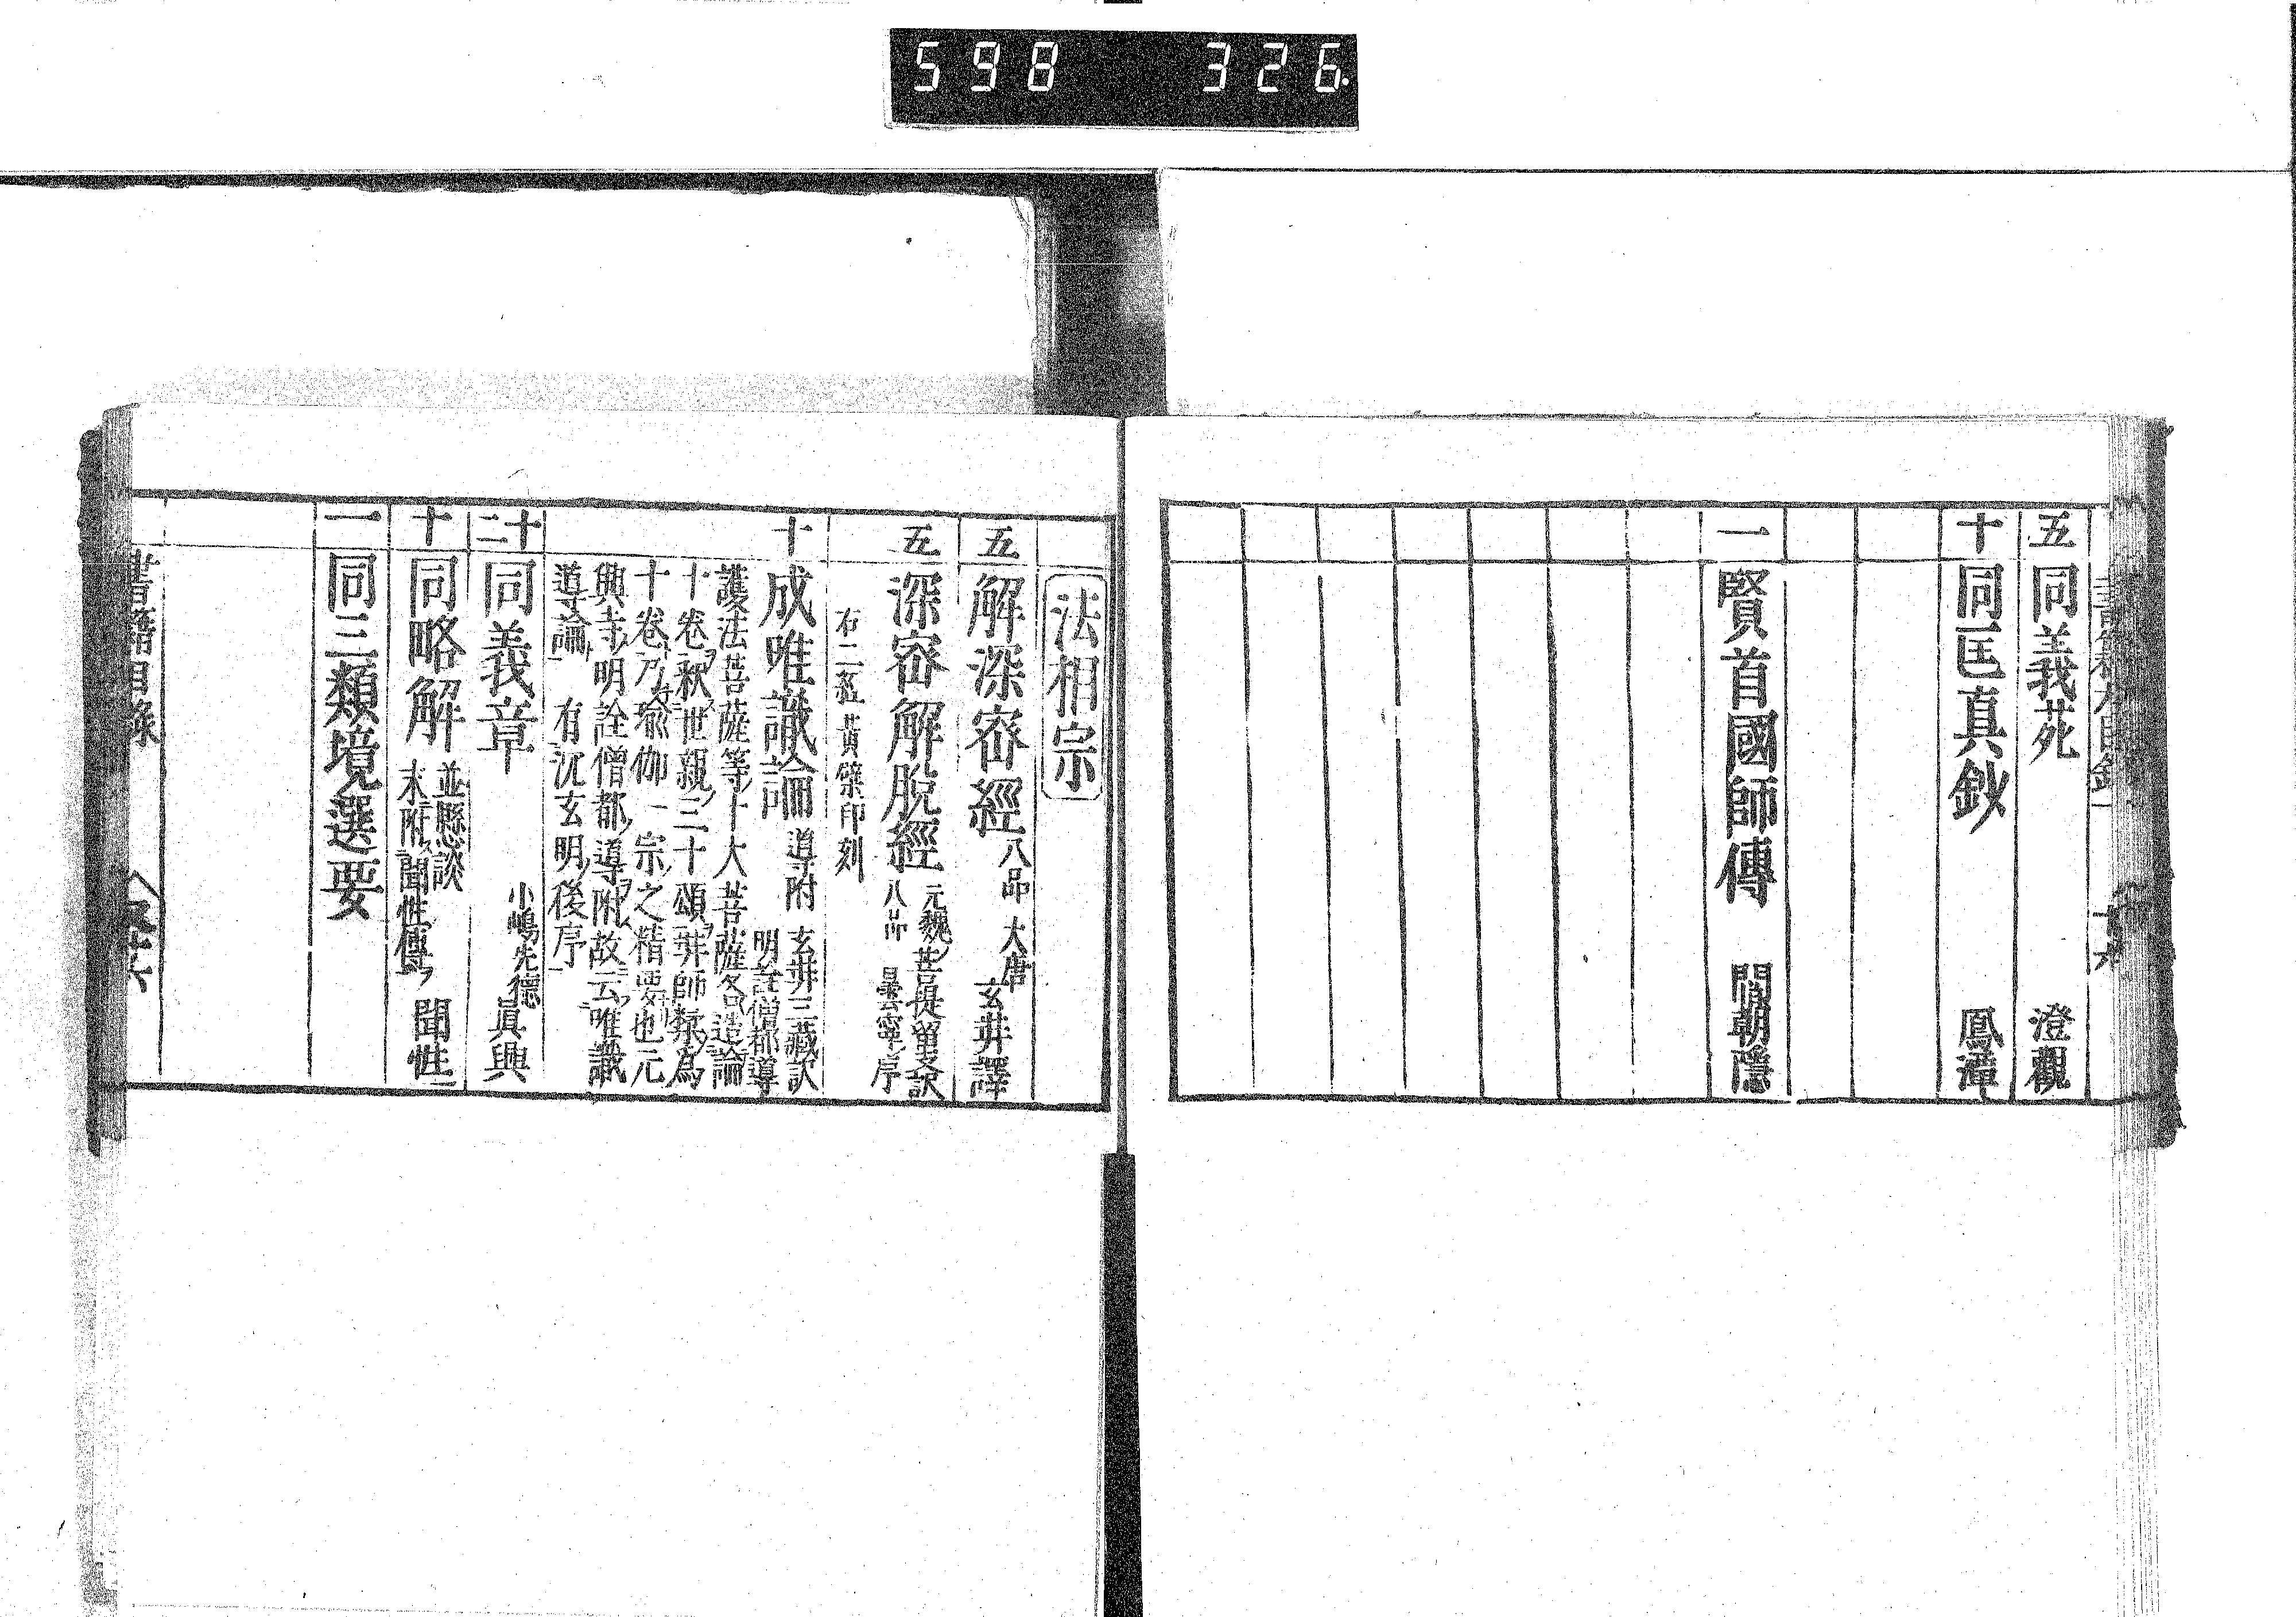 598 326.
五 同義苑 澄觀
十 同匡真鈔 鳳潭
一 賢首國師傳 閒朝隱
法相宗
五 解深密經 八品 大唐 玄弉譯
五 深密解脫經 元魏菩提留支訳
八品 曇寧序
右二經黄檗印刻
十 成唯識論 導附 玄弉三藏訳
明詮僧都導
護法菩薩等十大菩薩各造論
十卷釈世親三十頌弉師糅為
十卷乃瑜伽一宗之精要也元
興寺明詮僧都導附故云唯識
導論 有沉玄明後序
十二 同義章 小嶋先德 眞興
十 同略解 並懸談 聞性
末附聞性傳
一 同三類境選要
書籍目錄